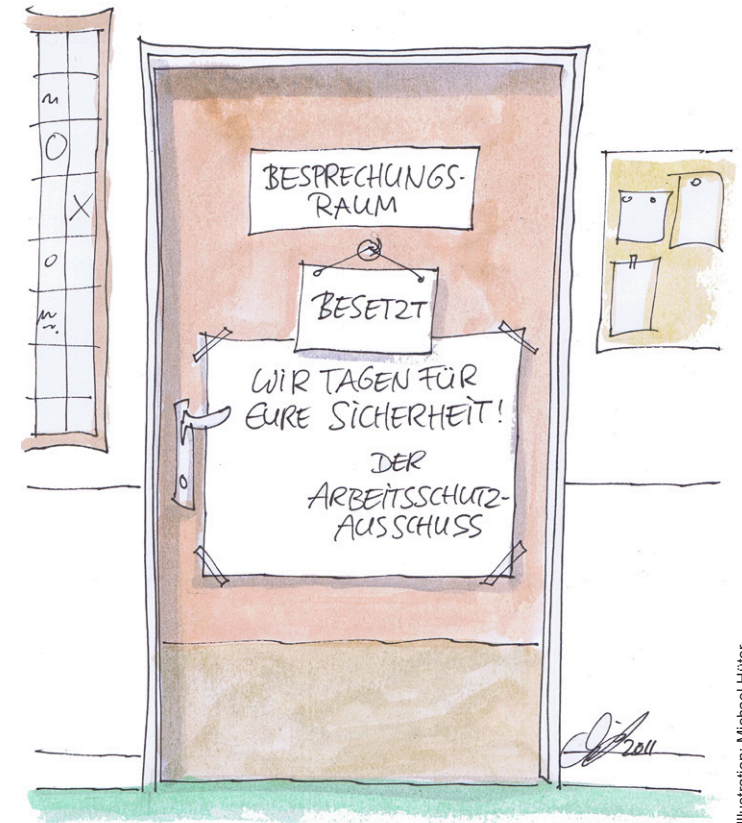 BESPRECHUNGS-
RAUM
BESETZT
WIR TAGEN FÜR
EURE SICHERHEIT!
DER
ARBEITSSCHUTZ-
AUSSCHUSS
2011
Illustration: Michael Hüter